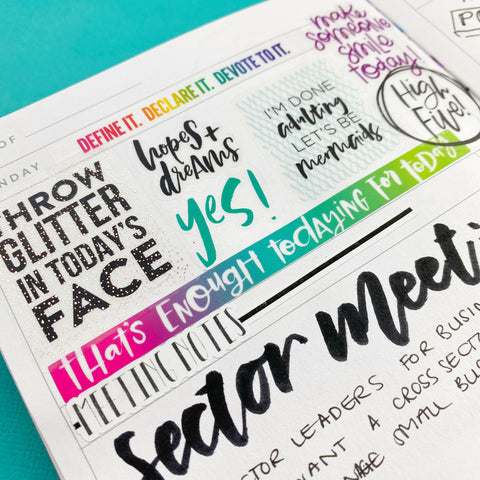 PO
OF
NDAY
DEFINE IT. DECLARE IT. DEVOTE TO IT.
make
someone
smile
today!
High
Five!
hopes +
dreams
yes!
I'M DONE
adulting
LET'S BE
mermaids
THROW
GLITTER
IN TODAY'S
FACE
THAT'S ENOUGH TODAYING FOR TODAY
MEETING NOTES
Sector meeti
CTOR LEADERS FOR BUSIN
WANT A CROSS SECT
SMALL BU